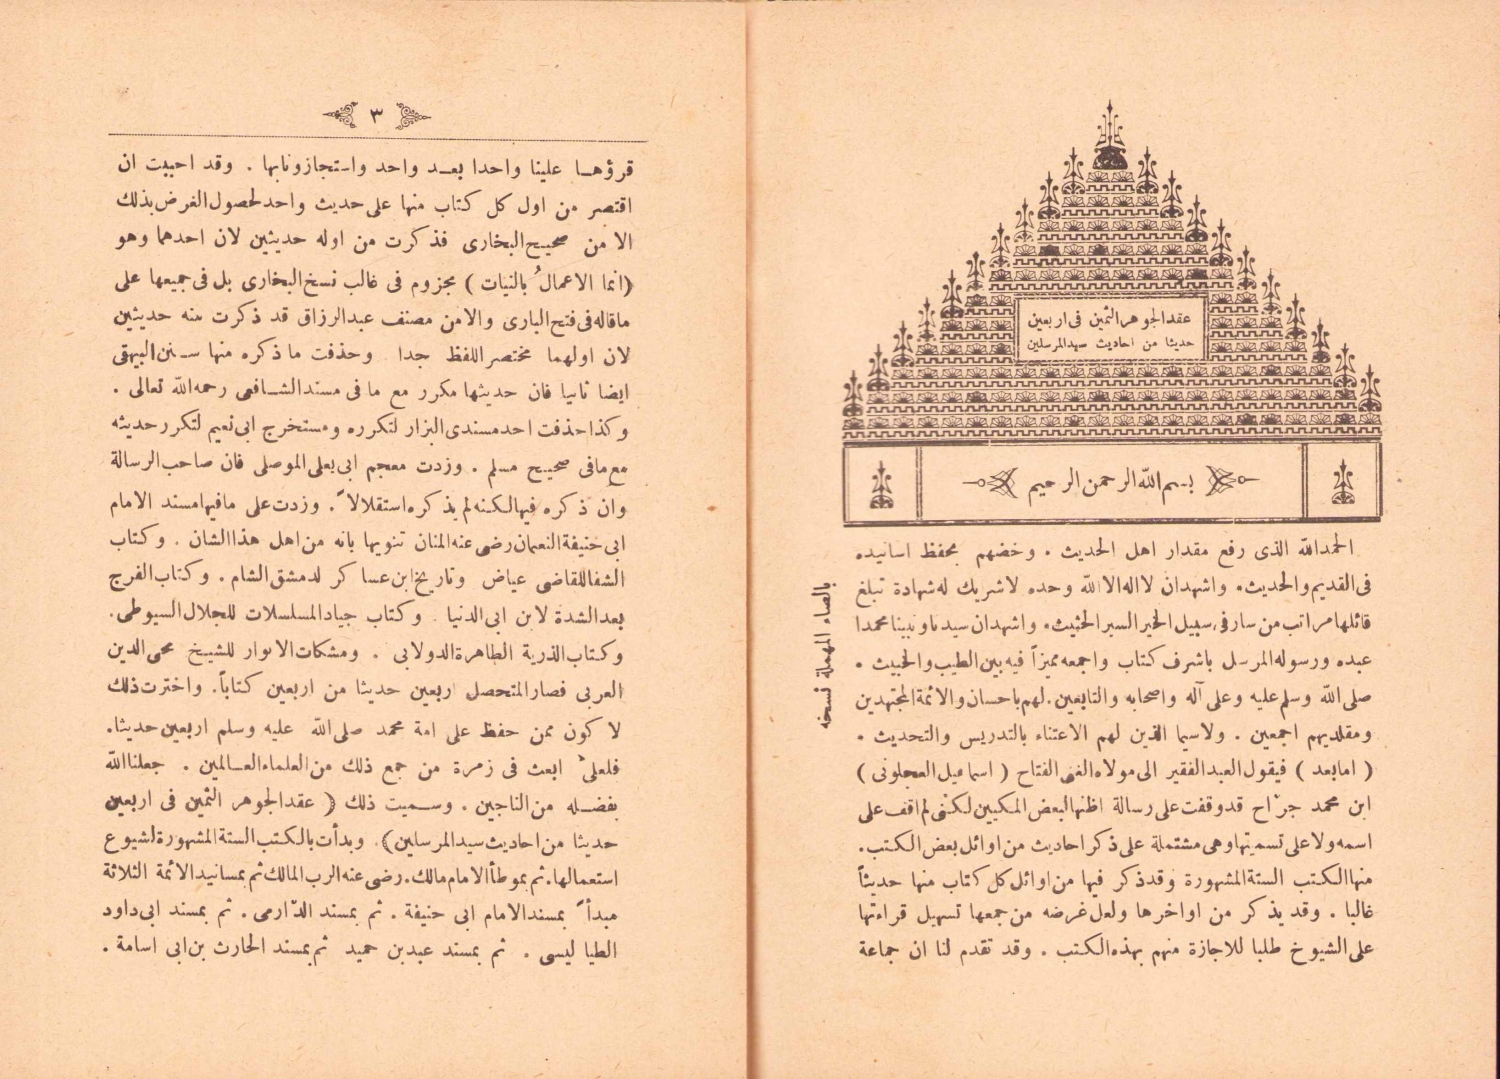 عقد الجوهر الثمين فى اربعين
حديثا من احاديث سيد المرسلين
بسم الله الرحمن الرحيم
الحمدلله الذى رفع مقدار اهل الحديث . وخضهم بحفظ اسانيده
فى القديم والحديث. واشهدان لااله الا الله وحده لاشريك له شهادة تبلغ
قائلها مراتب من سار فى سبيل الخير السير الحثيث. واشهدان سيدنا ونبينا محمدا
عبده ورسوله المرسل باشرف كتاب واجمعه مميزاً فيه بين الطيب والخبيث .
صلى الله وسلم عليه وعلى آله واصحابه والتابعين. لهم باحسان والائمة المجتهدين
ومقلديهم اجمعين . ولاسيما الذين لهم الاعتناء بالتدريس والتحديث .
( امابعد ) فيقول العبد الفقير الى مولاه الغنى الفتاح ( اسماعيل العجلونى )
ابن محمد جرّاح قدوقفت على رسالة اظنها لبعض المكيين لكننى لم اقف على
اسمه ولا على تسميتها وهى مشتملة على ذكر احاديث من اوائل بعض الكتب.
منها الكتب الستة المشهورة وقدذكر فيها من اوائل كل كتاب منها حديثاً
غالبا . وقد يذكر من اواخرها ولعل غرضه من جمعها تسهيل قراءتها
على الشيوخ طلبا للاجازة منهم بهذه الكتب . وقد تقدم لنا ان جماعة
بالصاد المهملة نسخه
٣
قرؤهـا علينا واحدا بعـد واحد واستجازونابها . وقد احببت ان
اقتصر من اول كل كتاب منها على حديث واحد لحصول الغرض بذلك
الا من صحيح البخارى فذكرت من اوله حديثين لان احدهما وهو
(انما الاعمالُ بالنيات ) مجزوم فى غالب نسخ البخارى بل فى جميعها على
ماقاله فى فتح البارى والا من مصنف عبد الرزاق قد ذكرت منه حديثين
لان اولهما مختصر اللفظ جدا وحذفت ما ذكره منها سـنن البيهقى
ايضا ثانيا فان حديثها مكرر مع ما فى مسند الشـافعى رحمه الله تعالى .
وكذا حذفت احد مسندى البزار لتكرره ومستخرج ابى نعيم لتكرر حديثه
مع مافى صحيح مسلم . وزدت معجم ابى يعلى الموصلى فان صاحب الرسالة
وان ذكره فيها لكنه لم يذكره استقلالاً . وزدت على مافيها مسند الامام
ابى حنيفة النعمان رضى عنه المنان تنويها بانه من اهل هذا الشان . وكتاب
الشفا للقاضى عياض وتاريخ ابن عساكر لدمشق الشام . وكتاب الفرج
بعد الشدة لابن ابى الدنيا . وكتاب جياد المسلسلات للجلال السيوطى.
وكتاب الذرية الطاهرة الدولابى . ومشكات الانوار للشيخ محى الدين
العربى فصار المتحصل اربعين حديثا من اربعين كتاباً. واخترت ذلك
لاكون ممن حفظ على امة محمد صلى الله عليه وسلم اربعين حديثا.
فلعلى ابعث فى زمرة من جمع ذلك من العلماء العـالمين . جعلنا الله
بفضـله من الناجين . وسـميت ذلك ( عقد الجوهر الثمين فى اربعين
حديثا من احاديث سيد المرسلين). وبدأت بالكتب الستة المشهورة لشيوع
استعمالها. ثم بموطأ الامام مالك. رضى عنه الرب المالك ثم بمسانيد الائمة الثلاثة
مبدأً بمسند الامام ابى حنيفة . ثم بمسند الدّارمى . ثم بمسند ابى داود
الطيا ليسى . ثم بمسند عبد بن حميد ثم بمسند الحارث بن ابى اسامة .